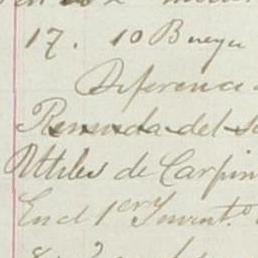 17. 10 Bueyes
Diferencia
Remuda del
Utiles de Carpin
En el 1er Invent.o